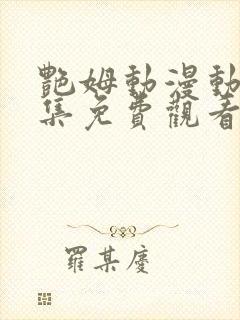 艷姆動漫動
集免費觀看
羅某慶